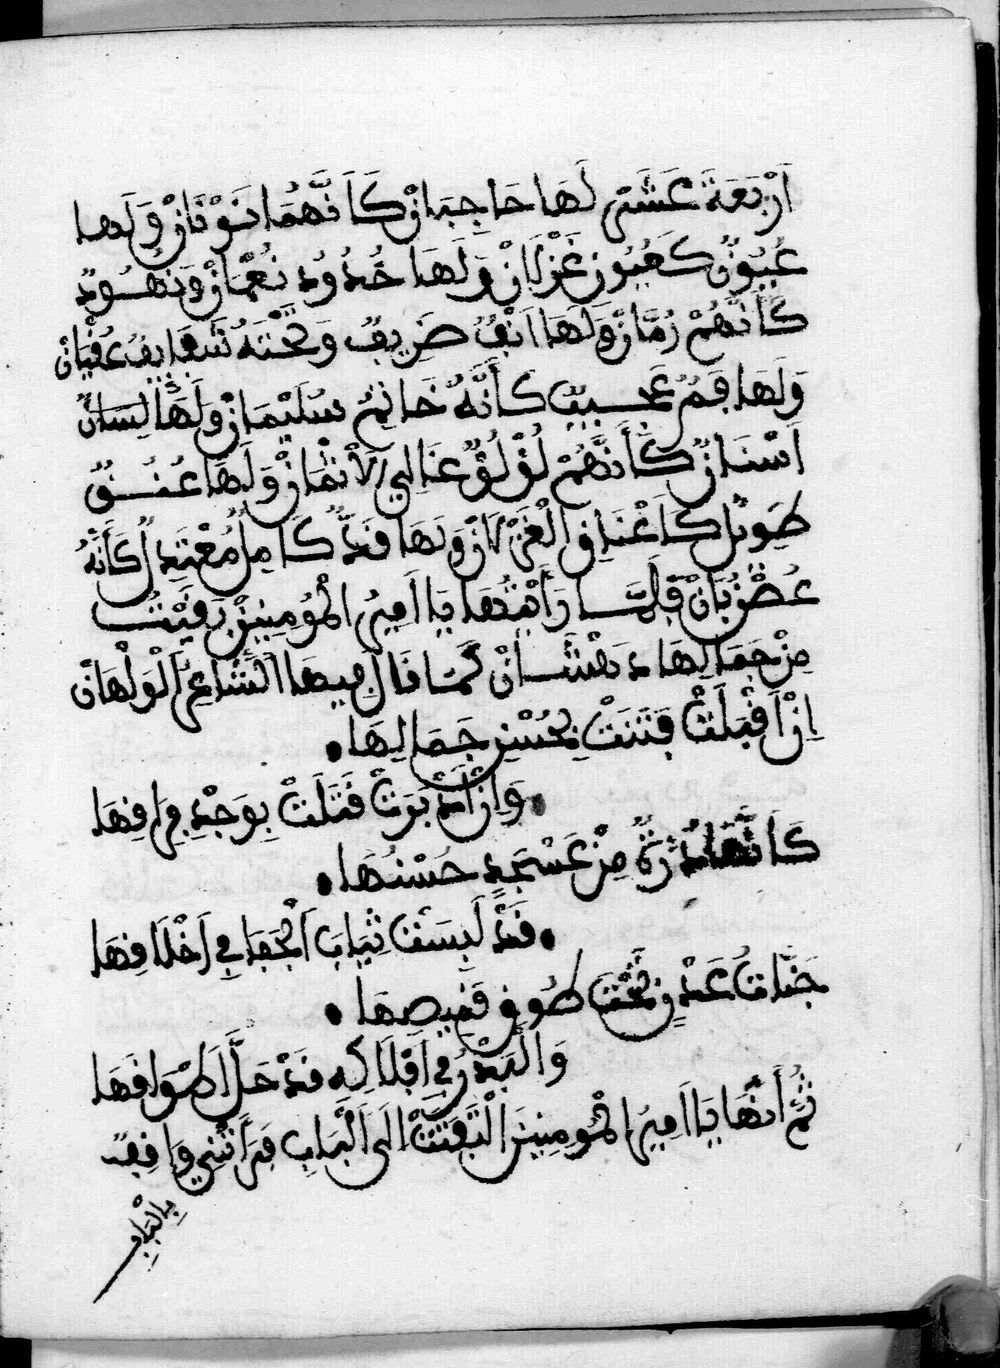 اَرْبَعَةَ عَشَرْ لَهَا حَاجِبَانْ كَاَنَّهُمَا نَوْنَانْ وَلَهَا
عُيُونٌ كَعُيُونِ غَزْلَانْ وَلَهَا خُدُودْ نُعْمَانْ وَنُهُودٌ
كَأَنَّهُمْ رُمَّانْ وَلَهَا اَنْفٌ ظَرِيفٌ وَتَحْتَهُ شَفَايِفُ عِقْيَانْ
وَلَهَا فَمٌ عَجِيبٌ كَأَنَّهُ خَاتِمُ سُلَيْمَانْ وَلَهَا لِسَانٌ
اَسْنَانٌ كَأَنَّهُمْ لُؤْلُؤٌ غَالِي الْاَثْمَانْ وَلَهَا عُنُقٌ
طَوِيلٌ كَاَعْنَاقِ الْغَزْلَانْ وَلَهَا قَدٌّ كَامِلٌ مُعْتَدِلٌ كَأَنَّهُ
غُصْنُ بَانْ فَلَمَّا رَأَيْتُهَا يَا اَمِيرَ الْمُومِنِينَ بَقَيْتُ
مِنْ جَمَالِهَا دَهْشَانْ كَمَا قَالَ فِيهَا الشَّاعِرُ الْوَلْهَانْ
اِنْ اَقْبَلَتْ فَتَنَتْ بِحُسْنِ جَمَالِهَا •
• وَاِنْ اَدْبَرَتْ قَتَلَتْ بِوَجْدِ فِرَاقِهَا
كَاَنَّهَا دُرَّةٌ مِنْ عَسْجَدٍ حُسْنُهَا •
• قَدْ لَبِسَتْ ثِيَابَ الْجَفَا فِي اَخْلَاقِهَا
جَنَّاتُ عَدْنٍ تَحْتَ طَوْقِ قَمِيصِهَا •
وَالْبَدْرُ فِي اَفْلَاكِهِ قَدْ حَلَّ اَطْوَاقَهَا
ثُمَّ أَنَّهَا يَا اَمِيرَ الْمُومِنِينَ الْتَفَتَتْ اِلَى الْبَابِ فَرَأَتْنِي وَاقِفٌ
بِالْبَابِ